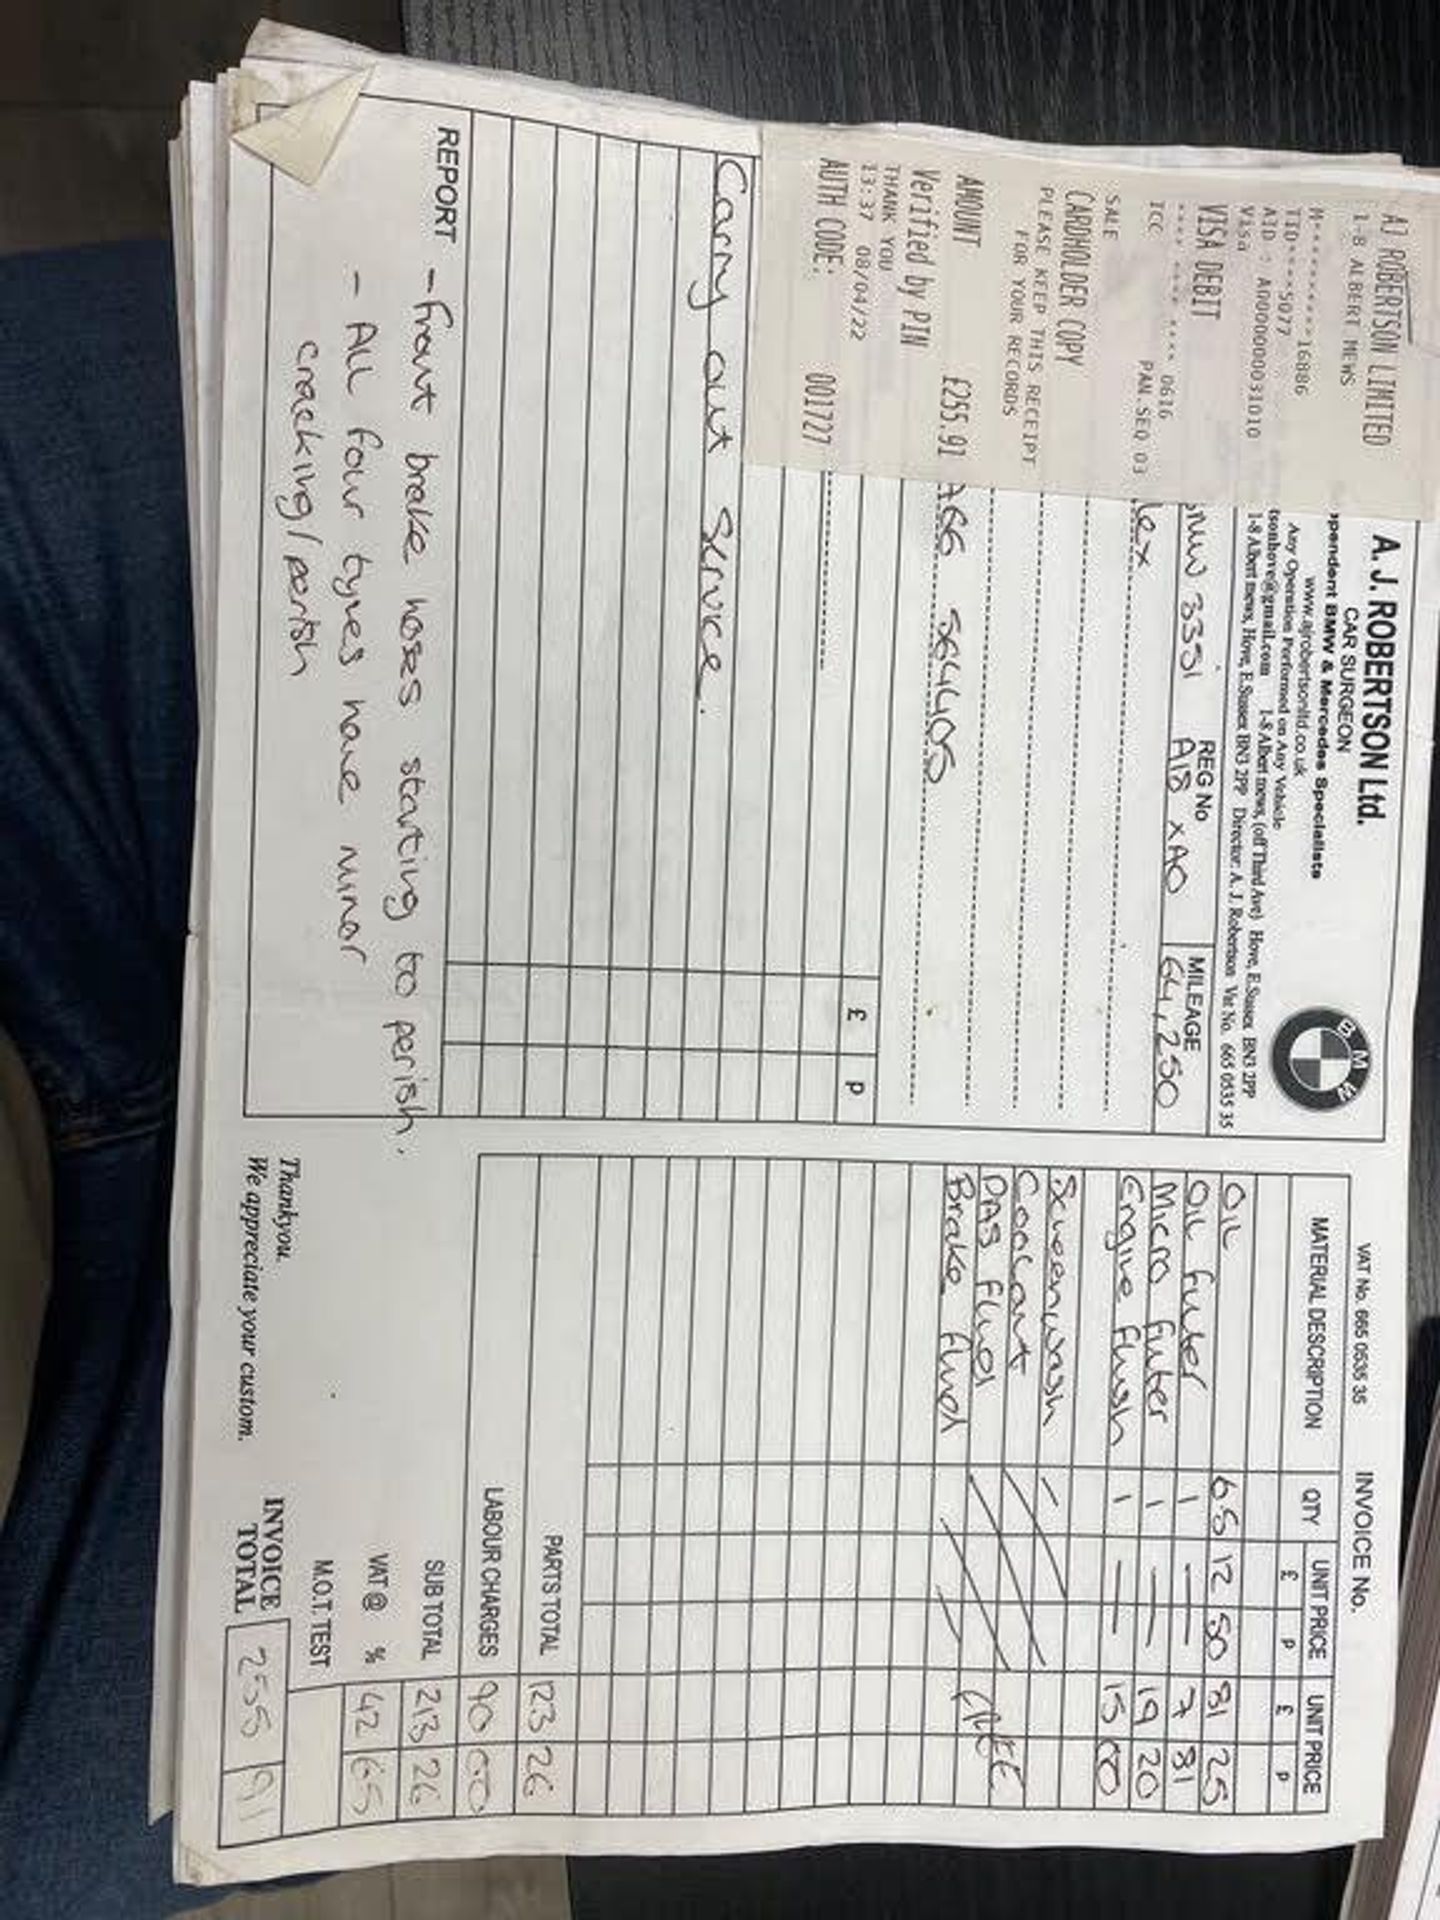 AJ ROBERTSON LIMITED
1-8 ALBERT MEWS
M**********16886
TID****5077
AID : A0000000031010
Visa
VISA DEBIT
**** **** **** 0616
ICC PAN SEQ 03
SALE
CARDHOLDER COPY
PLEASE KEEP THIS RECEIPT
FOR YOUR RECORDS
AMOUNT £255.91
Verified by PIN
THANK YOU
13:37 08/04/22
AUTH CODE: 001727
A. J. ROBERTSON Ltd.
CAR SURGEON
pendent BMW & Mercedes Specialists
www.ajrobertsonltd.co.uk
Any Operation Performed on Any Vehicle
tsonhove@gmail.com 1-8 Albert mews, (off Third Ave) Hove, E.Sussex BN3 2PP
1-8 Albert mews, Hove, E.Sussex BN3 2PP Director: A. J. Robertson Vat No. 665 0535 35
BMW
REG No MILEAGE
335i A18 XAO 64,250
lex
A66 564405
£ p
Carry out Service.
REPORT - Front brake hoses starting to perish.
- All four tyres have minor
cracking/perish
VAT No. 665 0535 35 INVOICE No.
MATERIAL DESCRIPTION QTY UNIT PRICE UNIT PRICE
£ p £ p
Oil 6.5 12 50 81 25
Oil Filter 1 — 7 81
Micro Filter 1 — 19 20
Engine Flush 1 — 15 00
Screenwash
Coolant
PAS Fluid
Brake Fluid FREE
PARTS TOTAL 123 26
LABOUR CHARGES 90 00
SUB TOTAL 213 26
VAT @ % 42 65
M.O.T. TEST
Thankyou.
We appreciate your custom.
INVOICE
TOTAL 255 91